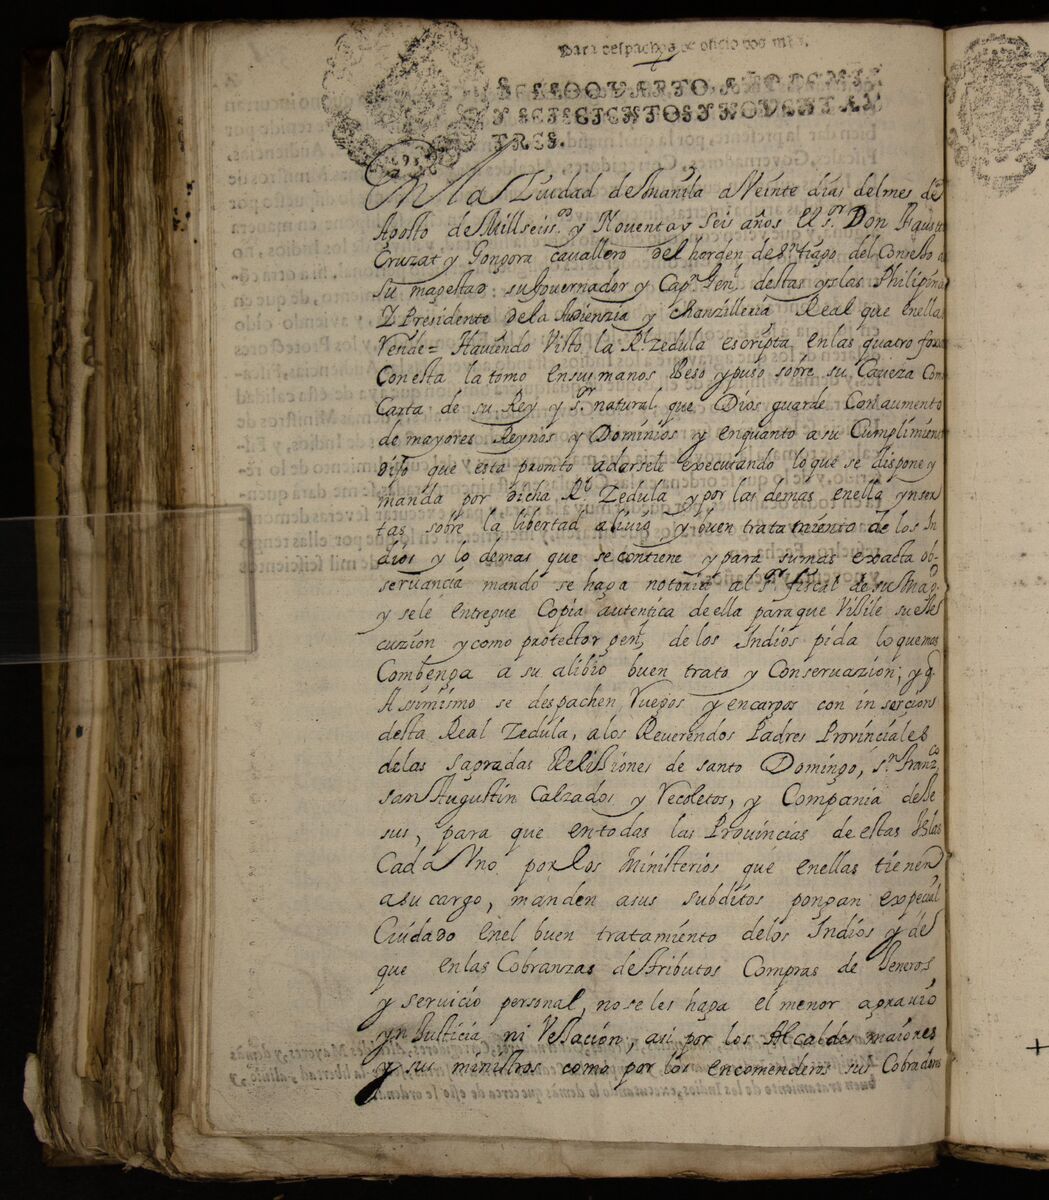 Para despachos de oficio dos mrs.
SELLO QVARTO, AÑO DE MIL
Y SEISCIENTOS Y NOVENTA Y
TRES.
En la Ziudad de Manila a Veinte dias del mes de
Agosto de Mill seisos. y Noventa y seis años El sr. Don Fausto
Cruzat y Gongora cavallero del horden de sntiago del Consejo de
su magestad su Governador y Capn. Genl. destas yslas Philipinas
Y Presidente de la Audienzia y Chanzilleria Real que en ella
Reside = Haviendo Visto la Rl. zedula escripta en las quatro foxas
Con esta la tomo en sus manos beso y puso sobre su Caveza Como
Carta de su Rey y sr. natural que Dios guarde Con aumento
de mayores Reynos y Dominios y en quanto a su Cumplimiento
dijo que esta promto a darsele executando lo que se dispone y
manda por dicha Rl. Zedula y por las demas en ella ynser
tas sobre la libertad alivio y buen tratamiento de los In
dios y lo demas que se contiene y para su mas exacta ob-
servancia mando se haga notoria al sr. fiscal de su Magd.
y se le entregue Copia autentica de ella para que Vijile su exe
cuzion y como protector genl. de los Indios pida lo que mas
Combenga a su alibio buen trato y Conservazion; y q.
Asimismo se despachen Ruegos y encargos con insercion
desta Real Zedula, a los Reverendos Padres Provinciales
de las sagradas Relijiones de santo Domingo, sn. Franco.
san Augustin Calzados y Recoletos, y Compania de Je
sus, para que en todas las Provincias de estas Yslas
Cada Vno por los Ministerios que en ellas tienen
a su cargo, manden a sus subditos pongan expecial
Cuidado en el buen tratamiento de los Indios y de
que en las Cobranzas de tributos Compras de Generos,
y servicio personal, no se les haga el menor agravio
ynjusticia ni Vejacion, asi por los Alcaldes maiores
y sus ministros como por los encomenderos sus Cobradores